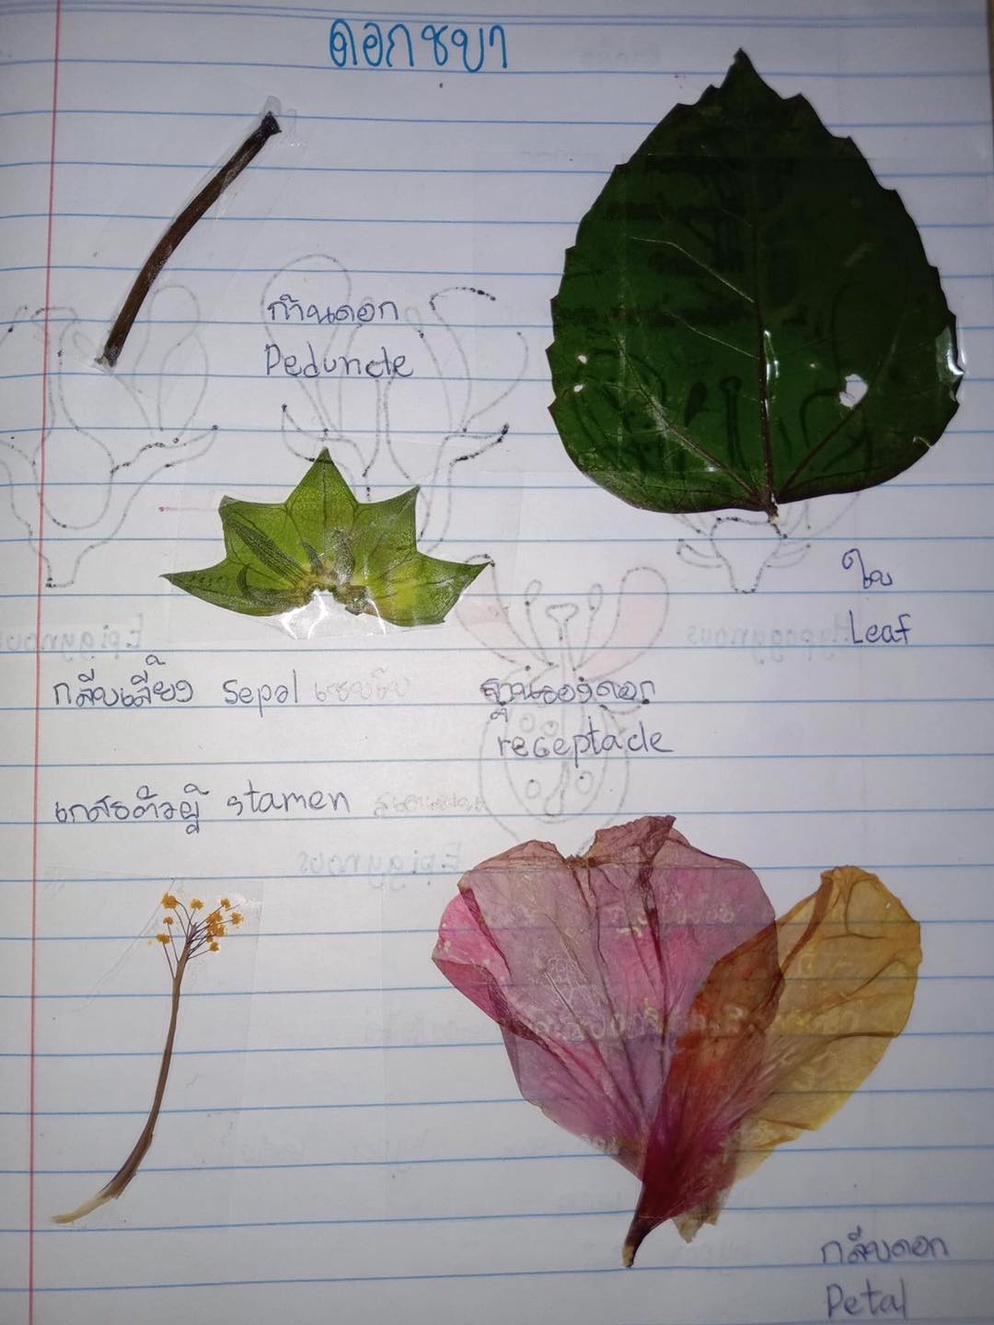 ดอกชบา
ก้านดอก
Peduncle
ใบ
Leaf
กลีบเลี้ยง Sepal
ฐานรองดอก
receptacle
เกสรตัวผู้ stamen
กลีบดอก
Petal